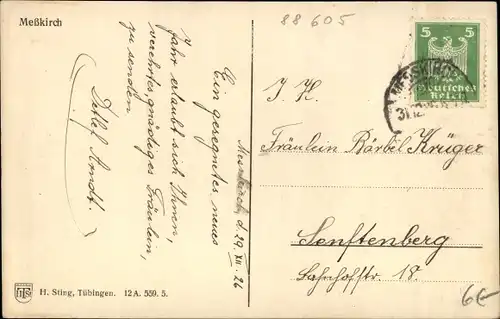 Meßkirch
88 605
Messkirch, d. 29. XII. 26
Ein gesegnetes neues
Jahr erlaubt sich Ihnen,
verehrtes gnädiges Fräulein,
zu senden
Detlef Arndt.
5 5
Deutsches
Reich
MESSKIRCH
31.12.
I. H.
Fräulein Bärbel Krüger
Senftenberg
Bahnhofstr. 18.
H. Sting, Tübingen. 12 A. 559. 5.
6€